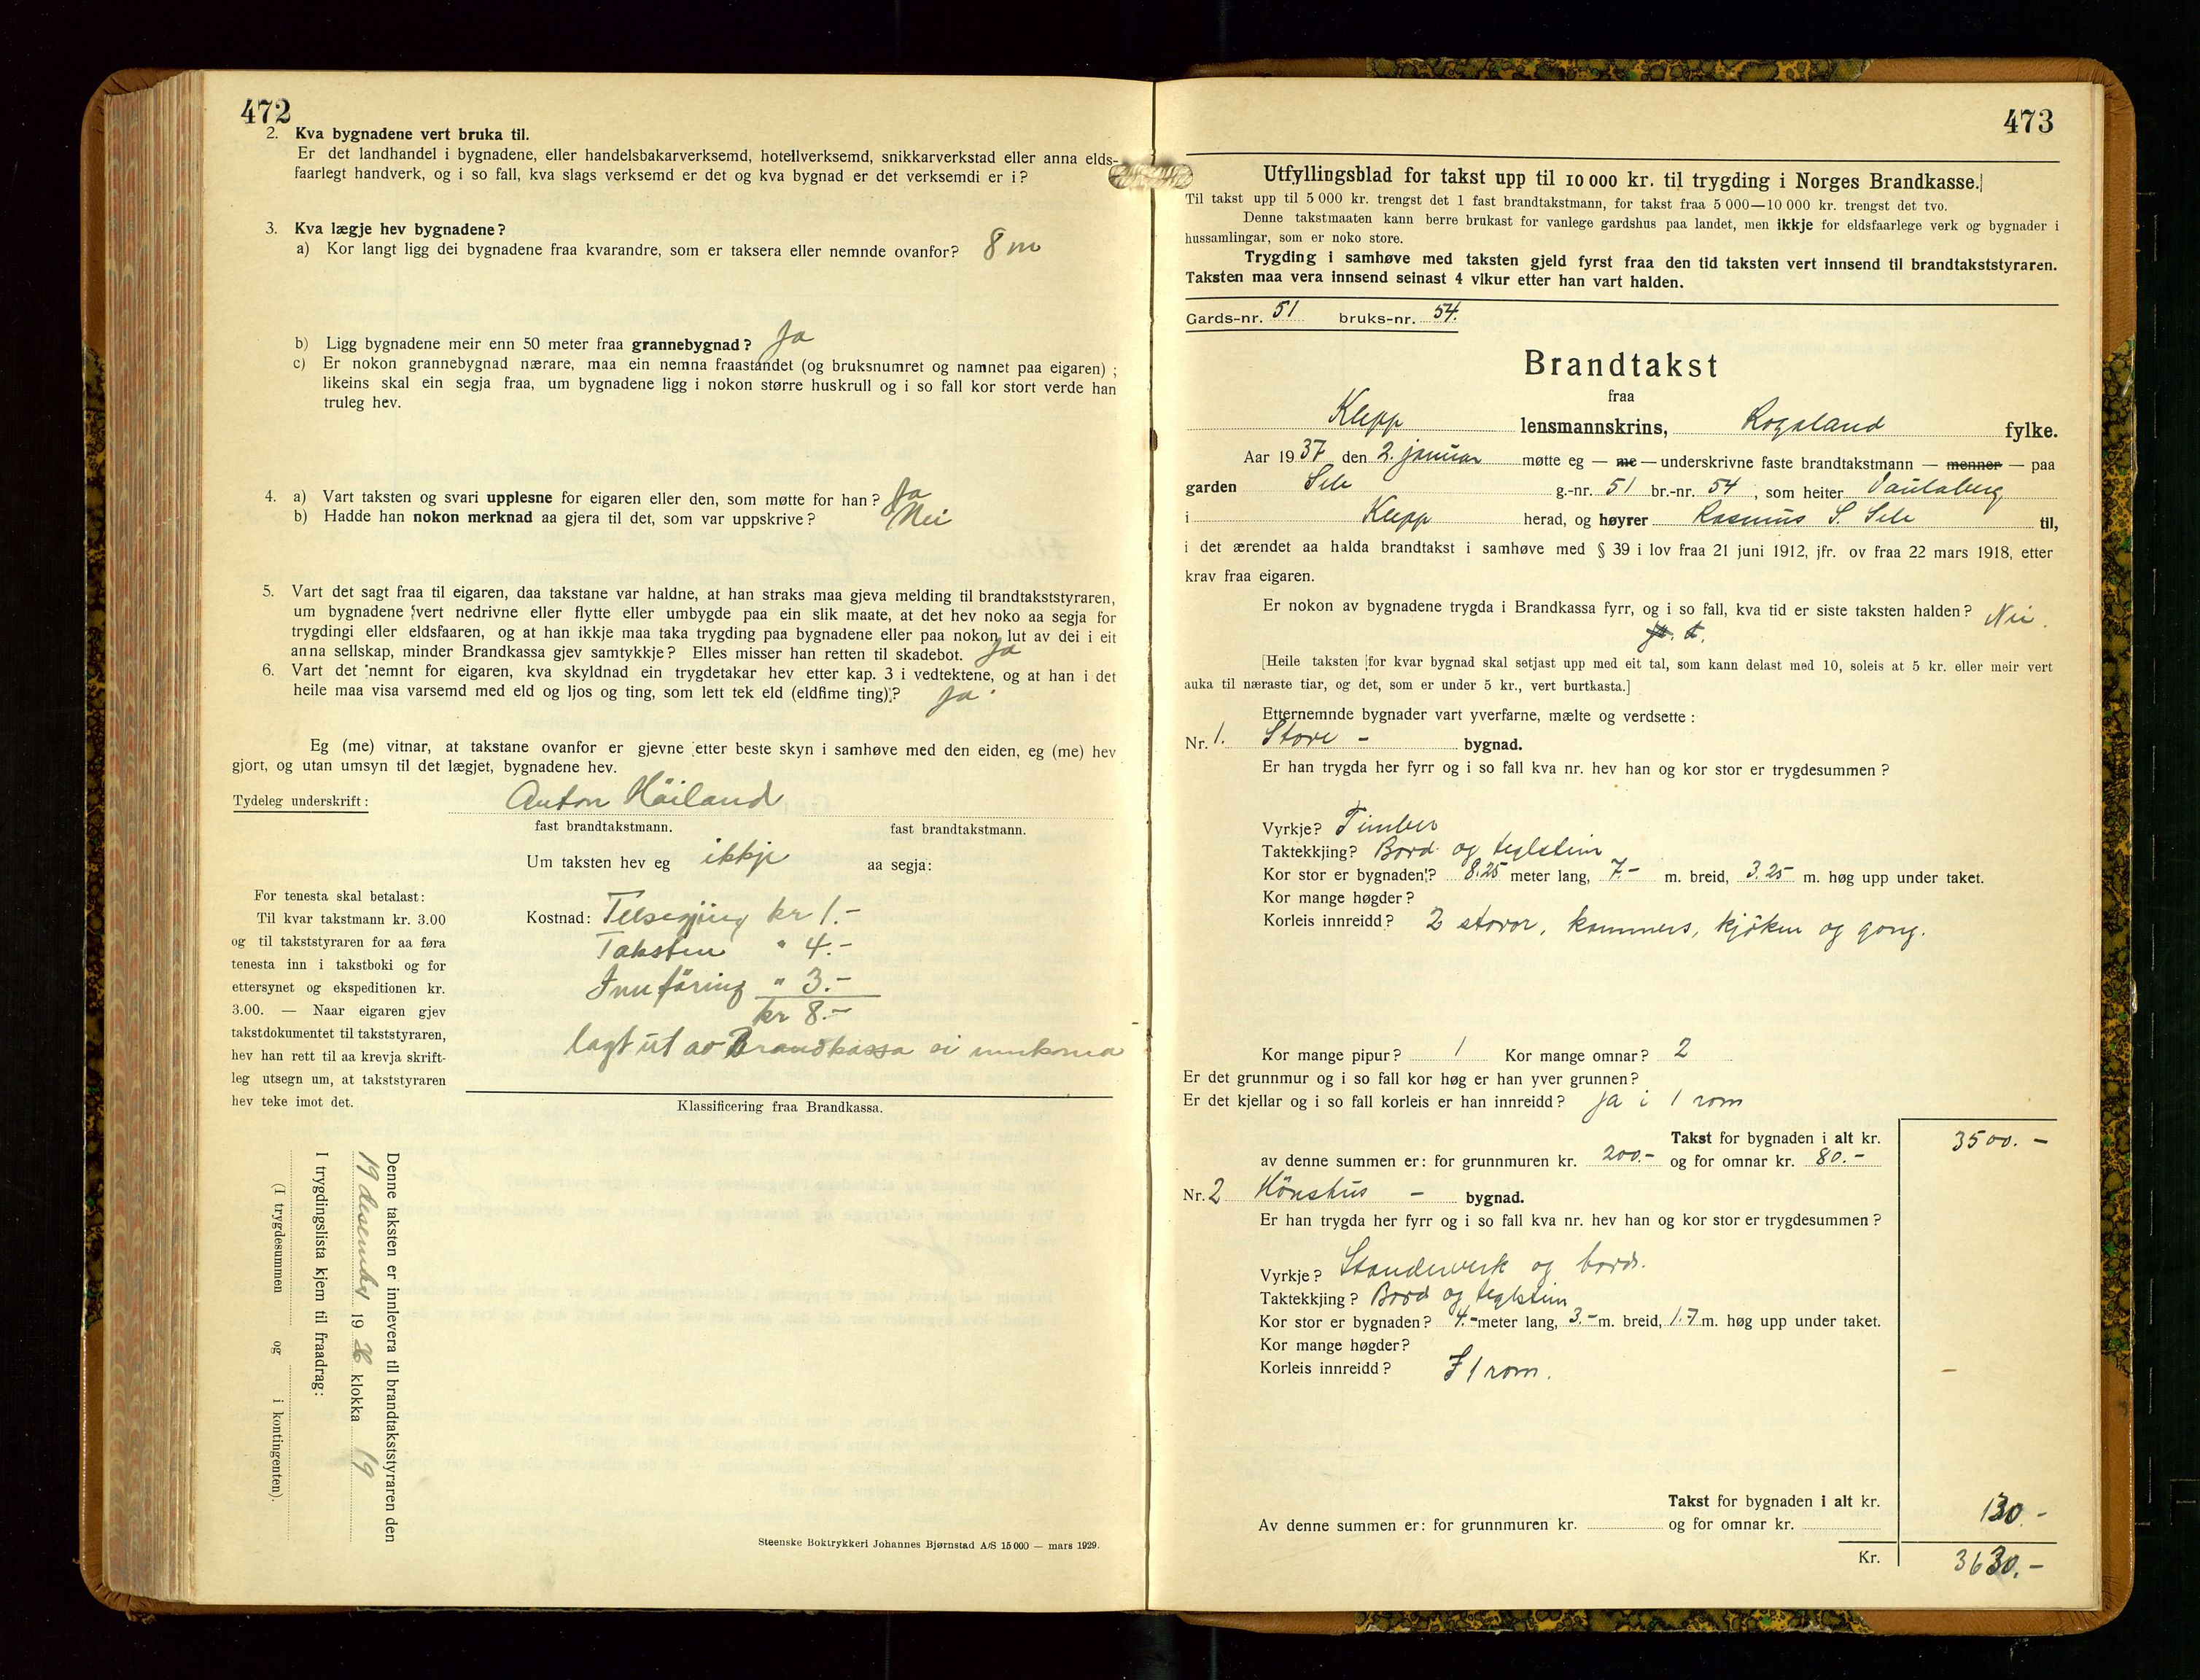 472
2. Kva bygnadene vert bruka til.
Er det landhandel i bygnadene, eller handelsbakarverksemd, hotellverksemd, snikkarverkstad eller anna elds-
faarlegt handverk, og i so fall, kva slags verksemd er det og kva bygnad er det verksemdi er i?
3. Kva lægje hev bygnadene?
a) Kor langt ligg dei bygnadene fraa kvarandre, som er taksera eller nemnde ovanfor? 8 m
b) Ligg bygnadene meir enn 50 meter fraa grannebygnad? Ja
c) Er nokon grannebygnad nærare, maa ein nemna fraastandet (og bruksnumret og namnet paa eigaren) ;
likeins skal ein segja fraa, um bygnadene ligg i nokon større huskrull og i so fall kor stort verde han
truleg hev.
4. a) Vart taksten og svari upplesne for eigaren eller den, som møtte for han? Ja
b) Hadde han nokon merknad aa gjera til det, som var uppskrive? Nei
5. Vart det sagt fraa til eigaren, daa takstane var haldne, at han straks maa gjeva melding til brandtakststyraren,
um bygnadene vert nedrivne eller flytte eller umbygde paa ein slik maate, at det hev noko aa segja for
trygdingi eller eldsfaaren, og at han ikkje maa taka trygding paa bygnadene eller paa nokon lut av dei i eit
anna sellskap, minder Brandkassa gjev samtykkje? Elles misser han retten til skadebot. Ja
6. Vart det nemnt for eigaren, kva skyldnad ein trygdetakar hev etter kap. 3 i vedtektene, og at han i det
heile maa visa varsemd med eld og ljos og ting, som lett tek eld (eldfime ting)? Ja
Eg (me) vitnar, at takstane ovanfor er gjevne etter beste skyn i samhøve med den eiden, eg (me) hev
gjort, og utan umsyn til det lægjet, bygnadene hev.
Tydeleg underskrift: Anton Höiland
fast brandtakstmann. fast brandtakstmann.
Um taksten hev eg ikkje aa segja:
For tenesta skal betalast:
Til kvar takstmann kr. 3.00
og til takststyraren for aa føra
tenesta inn i takstboki og for
ettersynet og ekspeditionen kr.
3.00. — Naar eigaren gjev
takstdokumentet til takststyraren,
hev han rett til aa krevja skrift-
leg utsegn um, at takststyraren
hev teke imot det.
Kostnad: Tilsegjing kr 1.-
Taksten " 4.-
Innföring " 3.-
kr 8.-
lagt ut av Brandkassa ei innkoma
Klassificering fraa Brandkassa.
Denne taksten er innlevera til brandtakststyraren den
19 desember 19 klokka 19
I trygdingslista kjem til fraadrag:
(I trygdesummen og i kontingenten).
Steenske Boktrykkeri Johannes Bjørnstad A/S 15 000 — mars 1929.
473
Utfyllingsblad for takst upp til 10 000 kr. til trygding i Norges Brandkasse.
Til takst upp til 5 000 kr. trengst det 1 fast brandtakstmann, for takst fraa 5 000—10 000 kr. trengst det tvo.
Denne takstmaaten kann berre brukast for vanlege gardshus paa landet, men ikkje for eldsfaarlege verk og bygnader i
hussamlingar, som er noko store.
Trygding i samhøve med taksten gjeld fyrst fraa den tid taksten vert innsend til brandtakststyraren.
Taksten maa vera innsend seinast 4 vikur etter han vart halden.
Gards-nr. 51 bruks-nr. 54.
Brandtakst
fraa
Klepp lensmannskrins, Rogaland fylke.
Aar 1937 den 2. januar møtte eg — me — underskrivne faste brandtakstmann — menner — paa
garden Sele g.-nr. 51 br.-nr. 54, som heiter Paulaberg
i Klepp herad, og høyrer Rasmus S. Sele til,
i det ærendet aa halda brandtakst i samhøve med § 39 i lov fraa 21 juni 1912, jfr. ov fraa 22 mars 1918, etter
krav fraa eigaren.
Er nokon av bygnadene trygda i Brandkassa fyrr, og i so fall, kva tid er siste taksten halden? Nei.
[Heile taksten for kvar bygnad skal setjast upp med eit tal, som kann delast med 10, soleis at 5 kr. eller meir vert
auka til næraste tiar, og det, som er under 5 kr., vert burtkasta.]
Etternemnde bygnader vart yverfarne, mælte og verdsette :
Nr. 1. Stove - bygnad.
Er han trygda her fyrr og i so fall kva nr. hev han og kor stor er trygdesummen ?
Vyrkje? Timber
Taktekkjing? Bord og teglstein
Kor stor er bygnaden? 8.25 meter lang, 7.- m. breid, 3.25 m. høg upp under taket.
Kor mange høgder?
Korleis innreidd? 2 stovor, kammers, kjöken og gong.
Kor mange pipur? 1 Kor mange omnar? 2
Er det grunnmur og i so fall kor høg er han yver grunnen?
Er det kjellar og i so fall korleis er han innreidd? Ja i 1 rom
Takst for bygnaden i alt kr. 3500.-
av denne summen er: for grunnmuren kr. 200.- og for omnar kr. 80.-
Nr. 2 Hönshus - bygnad.
Er han trygda her fyrr og i so fall kva nr. hev han og kor stor er trygdesummen ?
Vyrkje? Standerverk og bord.
Taktekkjing? Bord og teglstein
Kor stor er bygnaden? 4.- meter lang, 3.- m. breid, 1.7 m. høg upp under taket.
Kor mange høgder?
Korleis innreidd? I 1 rom.
Takst for bygnaden i alt kr. 130.-
Av denne summen er: for grunnmuren kr. og for omnar kr.
Kr. 3630.-